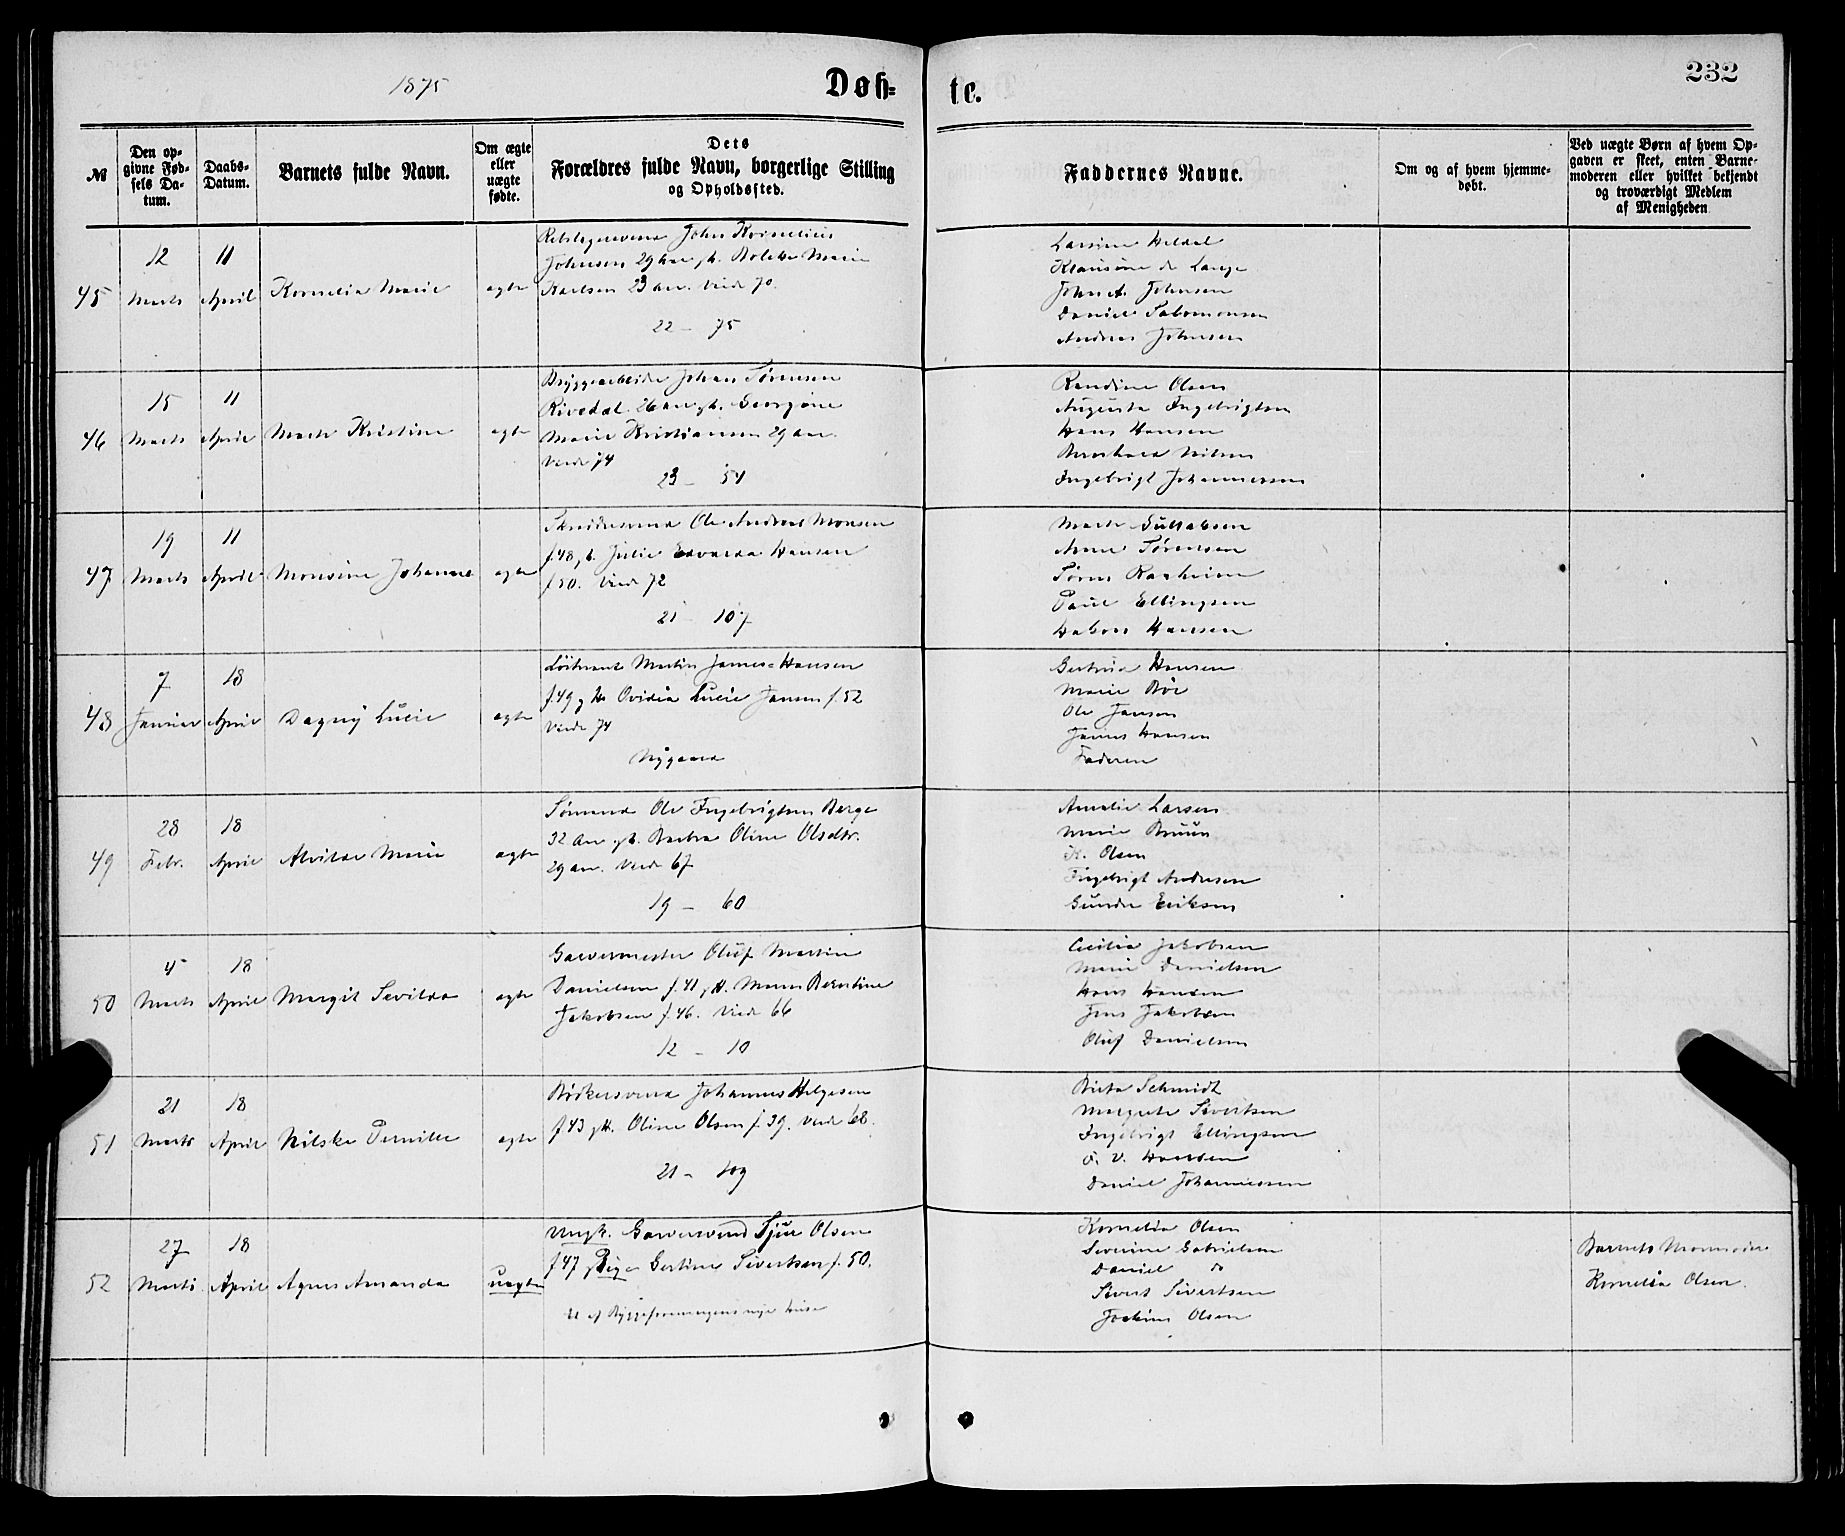 1875
Døb=
te.
232
№
Den op-
givne Fød-
sels Da-
tum.
Daabs-
Datum.
Barnets fulde Navn.
Om ægte
eller
uægte
fødte.
Dets
Forældres fulde Navn, borgerlige Stilling
og Opholdssted.
Faddernes Navne.
Om og af hvem hjemme-
døbt.
Ved uægte Børn af hvem Op-
gaven er skeet, enten Barne-
moderen eller hvilket bekjendt
og troværdigt Medlem
af Menigheden
45
12
Marts
11
April
Kornelia Marie
ægte
John Kornelius
Johnsen 29 Aar Marie
Karlsen 23 aar. Viede 70.
22 — 75
Larsine Heldal
de Lange
John A. Johnsen
Daniel Salomonsen
Andreas Johnsen
46
15
Marts
11
April
Marte Kristine
ægte
Bryggearbeider Johan Sørensen
Rivedal. 26 aar gh. Georgine
Marie Kristiansen 29 aar.
Viede 74
23 — 54
Randine Olsen
Augusta Ingebrigtsen
Hans Hansen
Bernhard Nilsen
Ingebrigt Johannessen
47
19
Marts
11
April
Monsine Johanne
ægte
Skreddersvend Ole Andreas Monsen
f. 48 gh. Julie Edvarda Hansen
f. 50. Viede 72
21 — 107
Marte
Anne Sørensen
Søren
Paul Ellingsen
Haкon Hansen
48
7
Januar
18
April
Dagny Lucie
ægte
Løitnant Martin James Hansen
f. 49 gh. Ovidia Lucie Jansen f. 52
Viede 74
Nygaard
Gertrud Hansen
Marie Bøe
Ole Jansen
James Hansen
Faderen
49
28
Febr.
18
April
Alvilde Marie
ægte
Sømand Ole Ingebrigtsen Berge
32 Aar gh. Barbra Oline Olsdtr.
29 aar. Viede 67
19 — 60
Amalie Larsen
Marie Bruun
K. Olsen
Ingebrigt Andersen
Eriksen
50
4
Marts
18
April
Margit Sevilda
ægte
Garvermester Oluf Martin
Danielsen f. 41 gh. Berntine
Jakobsen f. 46. Viede 66
12 — 10
Cecilia Jakobsen
Marie Danielsen
Hans Hansen
Jens Jakobsen
Oluf Danielsen
51
21
Marts
18
April
Nilska Pernille
ægte
Bødkersvend Johannes Helgesen
f. 43 gh. Oline Olsen f. 39. Viede 68.
21 — 109
Berta Schmidt
Margrete Sivertsen
Ingebrigt Ellingsen
Hansen
Daniel Johannessen
52
27
Marts
18
April
Agnes Amanda
uægte
Ungk. Garversvend Sjur Olsen
f. 47 Pige Gertine Sivertsen f. 50.
nye Huse
Kornelia Olsen
Severine Gabrielsen
Daniel do
Sivert Sivertsen
Joakim Olsen
Barnets Mormoder
Kornelia Olsen.